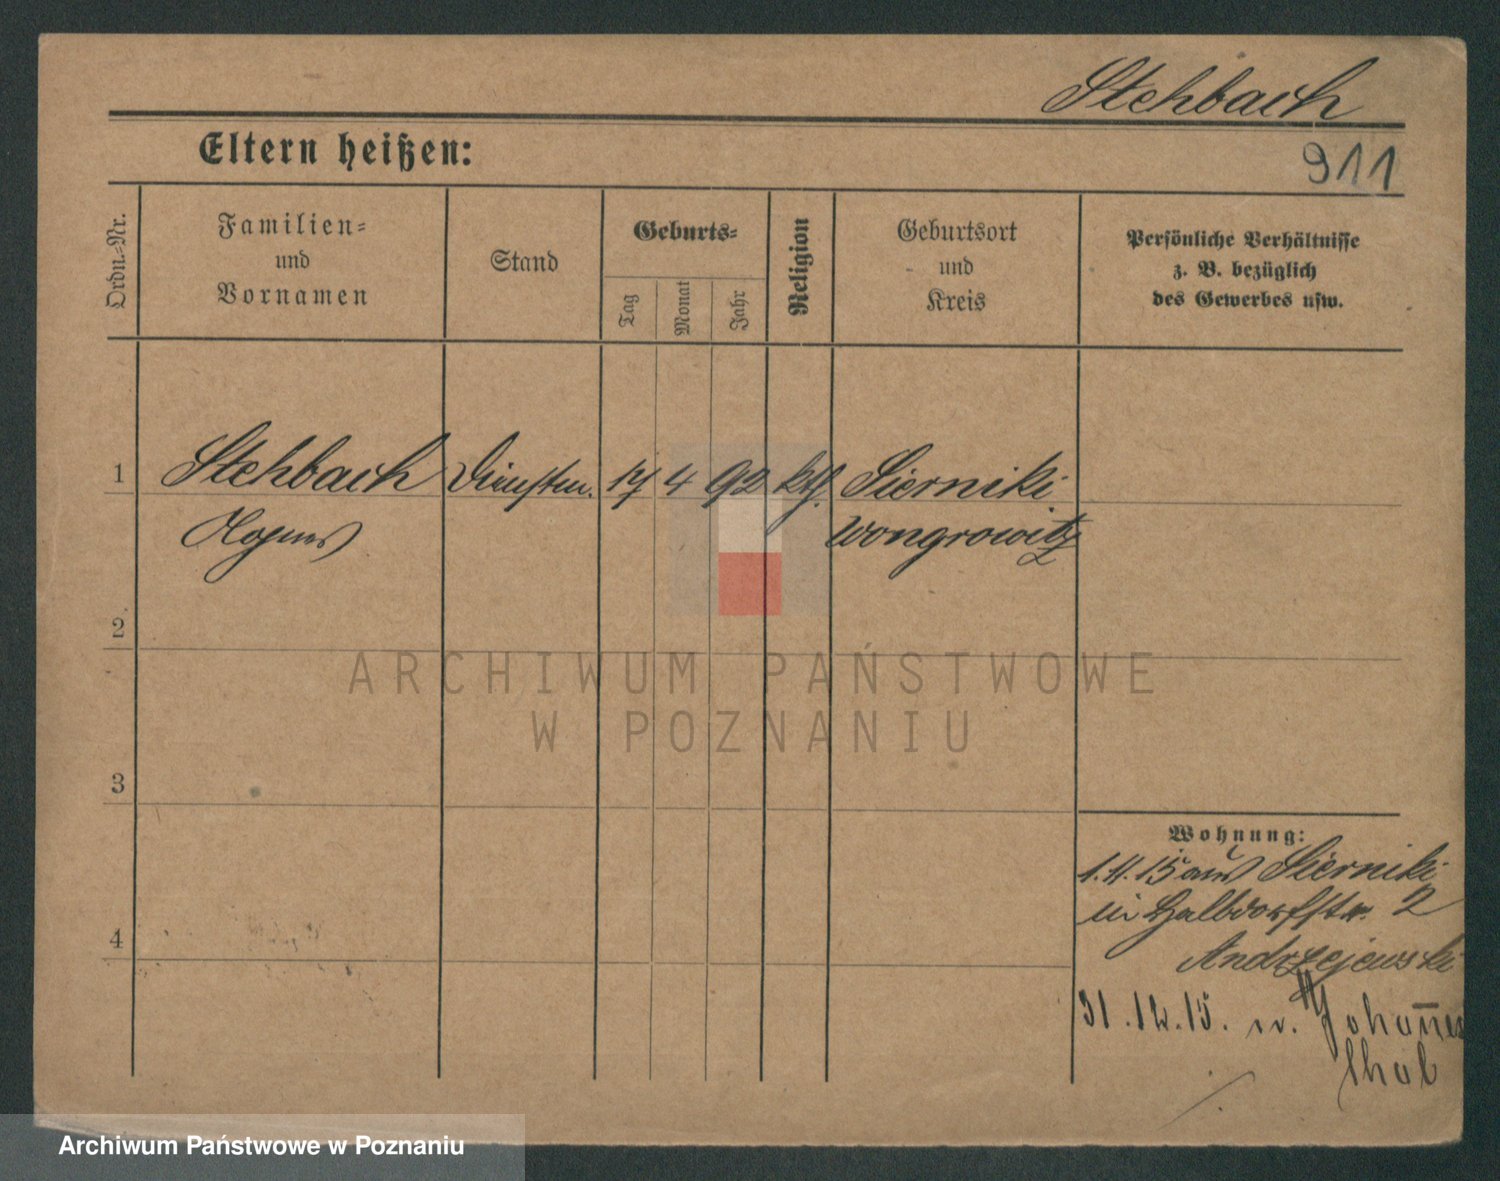 Stehbach
Eltern heißen:
911
Ordn.-Nr.
Familien-
und
Vornamen
Stand
Geburts-
Tag
Monat
Jahr
Religion
Geburtsort
und
Kreis
Persönliche Verhältnisse
z. B. bezüglich
des Gewerbes usw.
1
Stehbach Dienstm. 17 4 92 kth. Sierniki
Wongrowitz
2
ARCHIWUM PAŃSTWOWE
W POZNANIU
3
Wohnung:
1.11.15 aus Sierniki
in Halbdorfstr. 2
Andrzejewski
4
31.12.15. n. Johannes
thal
Archiwum Państwowe w Poznaniu